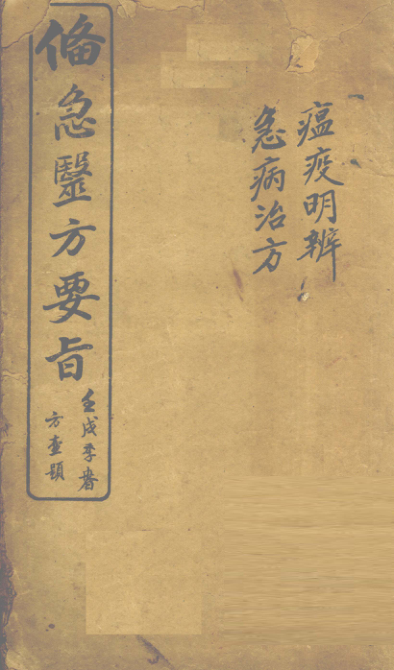 瘟疫明辨
急病治方
備急醫方要旨
壬戌季春
方查題